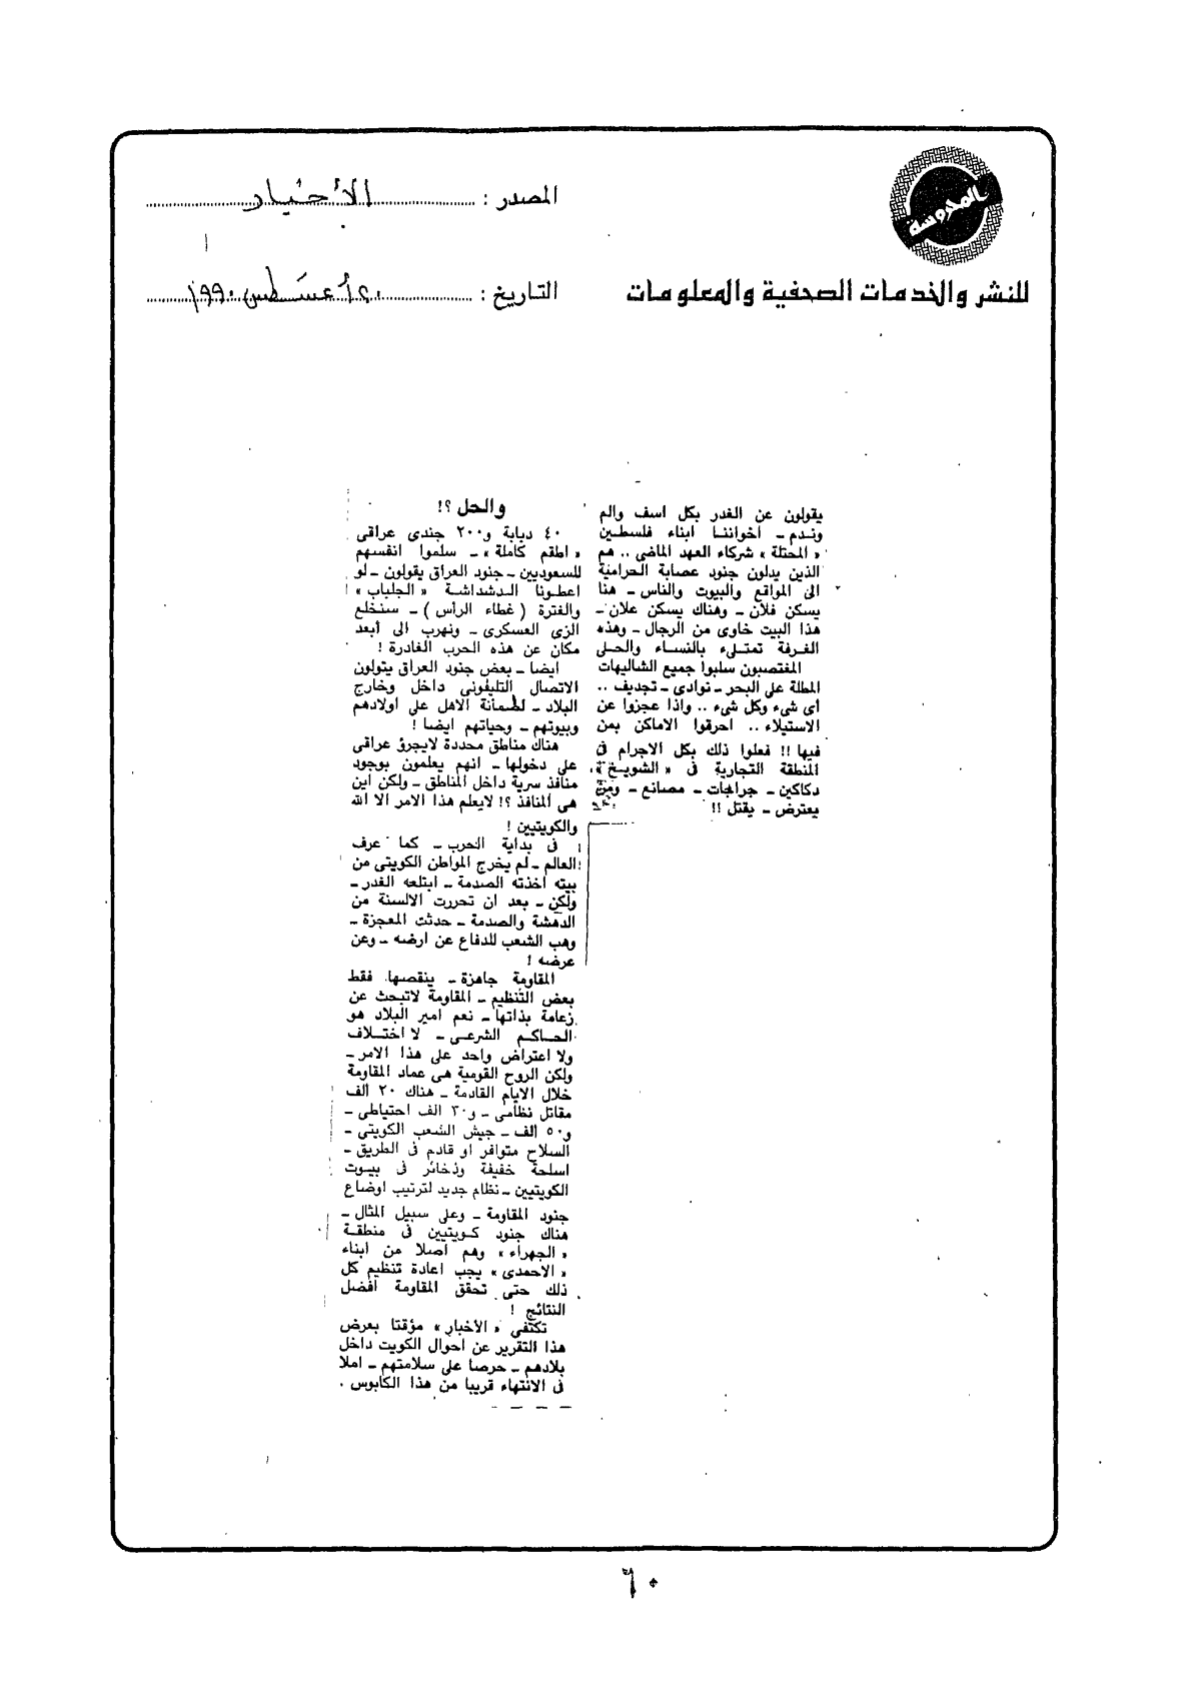 المحروسة
للنشر والخدمات الصحفية والمعلومات
المصدر : الأخبار
التاريخ : ٢٠ أغسطس ١٩٩٠
يقولون عن الغدر بكل اسف والم
وندم ـ اخواننا ابناء فلسطين
« المحتلة » شركاء العهد الماضى .. هم
الذين يدلون جنود عصابة الحرامية
الى المواقع والبيوت والناس ـ هنا
يسكن فلان ـ وهناك يسكن علان ـ
هذا البيت خاوى من الرجال ـ وهذه
الغرفة تمتلىء بالنساء والحلى
المغتصبون سلبوا جميع الشاليهات
المطلة على البحر ـ نوادى ـ تجديف ..
اى شىء وكل شىء .. واذا عجزوا عن
الاستيلاء .. احرقوا الاماكن بمن
فيها !! فعلوا ذلك بكل الاجرام فى
المنطقة التجارية فى « الشويخ »
دكاكين ـ جراجات ـ مصانع ـ ومن
يعترض ـ يقتل !!
والحل ؟!
٤٠ دبابة و٢٠٠ جندى عراقى
« اطقم كاملة » ـ سلموا انفسهم
للسعوديين ـ جنود العراق يقولون ـ لو
اعطونا الدشداشة « الجلباب »
والغترة ( غطاء الرأس ) ـ سنخلع
الزى العسكرى ـ ونهرب الى أبعد
مكان عن هذه الحرب الغادرة !
ايضا ـ بعض جنود العراق يتولون
الاتصال التليفونى داخل وخارج
البلاد ـ لطمانة الاهل على اولادهم
وبيوتهم ـ وحياتهم ايضا !
هناك مناطق محددة لايجرؤ عراقى
على دخولها ـ انهم يعلمون بوجود
منافذ سرية داخل المناطق ـ ولكن اين
هى المنافذ ؟! لايعلم هذا الامر الا الله
والكويتيين !
فى بداية الحرب ـ كما عرف
العالم ـ لم يخرج المواطن الكويتى من
بيته اخذته الصدمة ـ ابتلعه الغدر ـ
ولكن ـ بعد ان تحررت الالسنة من
الدهشة والصدمة ـ حدثت المعجزة ـ
وهب الشعب للدفاع عن ارضه ـ وعن
عرضه !
المقاومة جاهزة ـ ينقصها فقط
بعض التنظيم ـ المقاومة لاتبحث عن
زعامة بذاتها ـ نعم امير البلاد هو
الحاكم الشرعى ـ لا اختلاف
ولا اعتراض واحد على هذا الامر ـ
ولكن الروح القومية هى عماد المقاومة
خلال الايام القادمة ـ هناك ٢٠ الف
مقاتل نظامى ـ و٣٠ الف احتياطى ـ
و٥٠ الف ـ جيش الشعب الكويتى ـ
السلاح متوافر او قادم فى الطريق ـ
اسلحة خفيفة وذخائر فى بيوت
الكويتيين ـ نظام جديد لترتيب اوضاع
جنود المقاومة ـ وعلى سبيل المثال ـ
هناك جنود كويتيين فى منطقة
« الجهراء » وهم اصلا من ابناء
« الاحمدى » يجب اعادة تنظيم كل
ذلك حتى تحقق المقاومة افضل
النتائج !
تكتفى « الأخبار » مؤقتا بعرض
هذا التقرير عن احوال الكويت داخل
بلادهم ـ حرصا على سلامتهم ـ املا
فى الانتهاء قريبا من هذا الكابوس .
٦٠